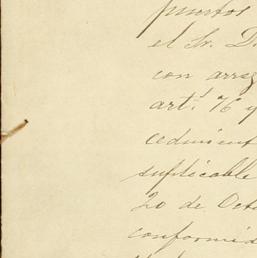 puertos
el Sr. D.
con arreg
art.s 76 y
cedimient
suplicable
20 de Octu
conformid